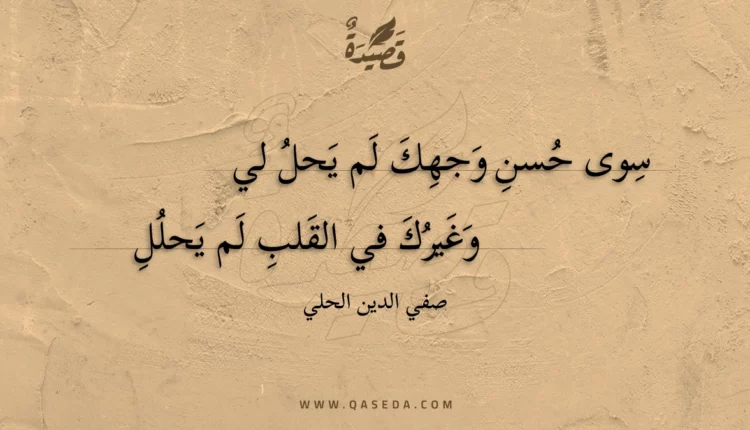 قَصِيدَةٌ
سِوى حُسنِ وَجهِكَ لَم يَحلُ لي
وَغَيرُكَ في القَلبِ لَم يَحلُلِ
صفي الدين الحلي
WWW.QASEDA.COM